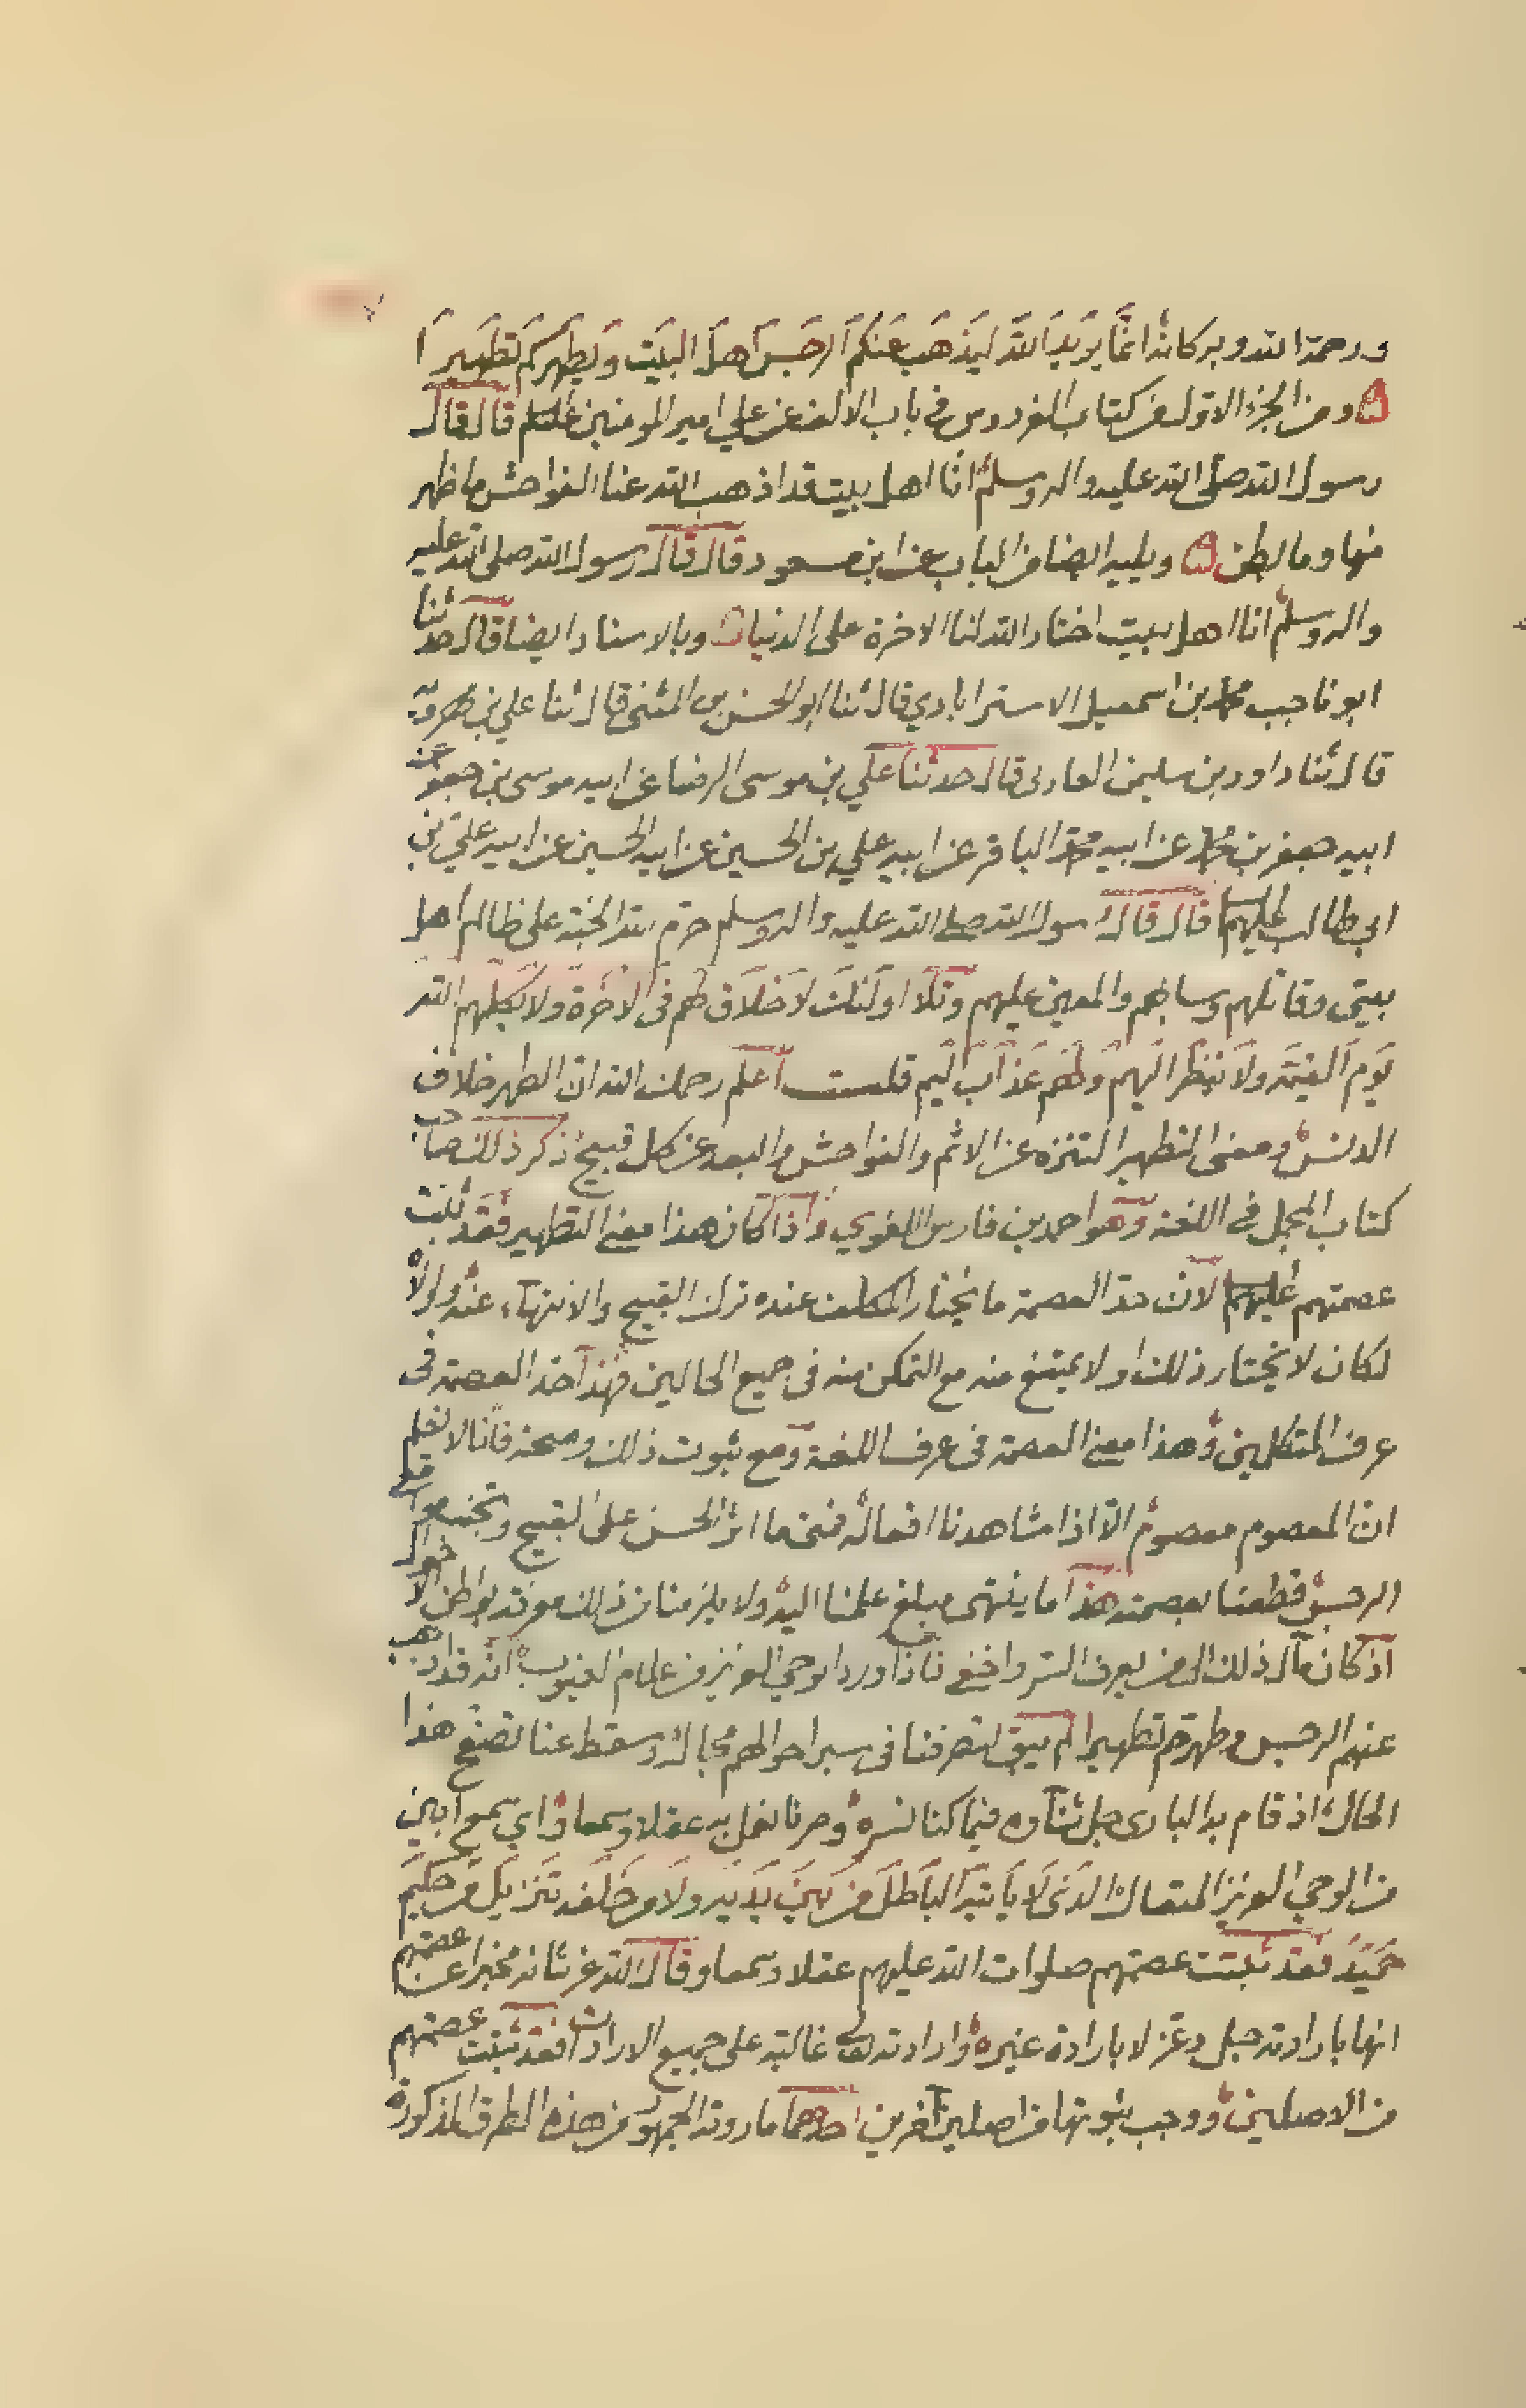 ورحمة الله وبركاته انما يريد الله ليذهب عنكم الرجس اهل البيت ويطهركم تطهيرا
ومن الجزء الاول من كتاب الفردوس في باب الالف عن علي امير المومنين عليه السلم قال قال
رسول الله صلى الله عليه واله وسلم انا اهل بيت قد اذهب الله عنا الفواحش ما ظهر
منها وما بطن ويليه ايضا من الباب عن ابن مسعود قال قال رسول الله صلى الله عليه
واله وسلم انا اهل بيت اختار الله لنا الاخرة على الدنيا وبالاسناد ايضا قال حدثنا
ابو ناجب محمد بن اسمعيل الاسترابادي قال ثنا ابو الحسن بن المثنى قال ثنا علي بن مهرويه
قال ثنا داود بن سليمن الغازي قال حدثنا علي بن موسى الرضا عن ابيه موسى بن جعفر عن
ابيه جعفر بن محمد عن ابيه محمد الباقر عن ابيه علي بن الحسين عن ابيه الحسين عن ابيه علي بن
ابي طالب عليهم السلم قال قال رسول الله صلى الله عليه واله وسلم حرم الله الجنة على ظالم اهل
بيتي وقاتلهم وسابهم والمعين عليهم وتلا اولئك لا خلاق لهم في الاخرة ولا يكلمهم الله
يوم القيمة ولا ينظر اليهم ولهم عذاب اليم قلت اعلم رحمك الله ان الطهر خلاف
الدنس ومعنى التطهير التنزه عن الاثم والفواحش والبعد عن كل قبيح ذكر ذلك صاحب
كتاب المجمل في اللغة وهو احمد بن فارس اللغوي واذا كان هذا معنى التطهير فقد ثبت
عصمتهم عليهم السلم لان حد العصمة ما يختار المكلف عنده ترك القبيح والانتهاء عنه ولولاه
لكان لا يختار ذلك او لا يمتنع منه مع التمكن منه في جميع الحالين فهذا حد العصمة في
عرف المتكلمين وهذا معنى العصمة في عرف اللغة ومع ثبوت ذلك وصحته فانا لا نعلم
ان المعصوم معصوم الا اذا شاهدنا افعاله فمتى ما اثر الحسن على القبيح وتجنب مواقع
الرجس قطعنا بعصمته هذا ما ينتهي مبلغ علمنا اليه ولا يلزمنا من ذلك معرفة بواطن الاحوال
اذ كان مآل ذلك الى من يعرف السر واخفى فاذا ورد الوحي العزيز من علام الغيوب انه قد اذهب
عنهم الرجس وطهرهم تطهيرا لم يبق لتصرفنا في سبر احوالهم مجال وسقط عنا تصفح هذا
الحال اذ قام به الباري جل ثناؤه فيما كنا نسره وصرنا نعمل به عقلا وسمعا واي سمع ابين
من الوحي العزيز المتعال الذي لا ياتيه الباطل من بين يديه ولا من خلفه تنزيل من حكيم
حميد فقد ثبتت عصمتهم صلوات الله عليهم عقلا وسمعا وقال الله عز شانه مخبرا عن عصمتهم
انها بارادته جل وعز لا بارادة غيره وارادته تعالى غالبة على جميع الارادات فقد ثبتت عصمتهم
من الاصلين ووجب ثبوتها من اصلين آخرين احدهما ما روته الجمهور من هذه الطرق المذكورة